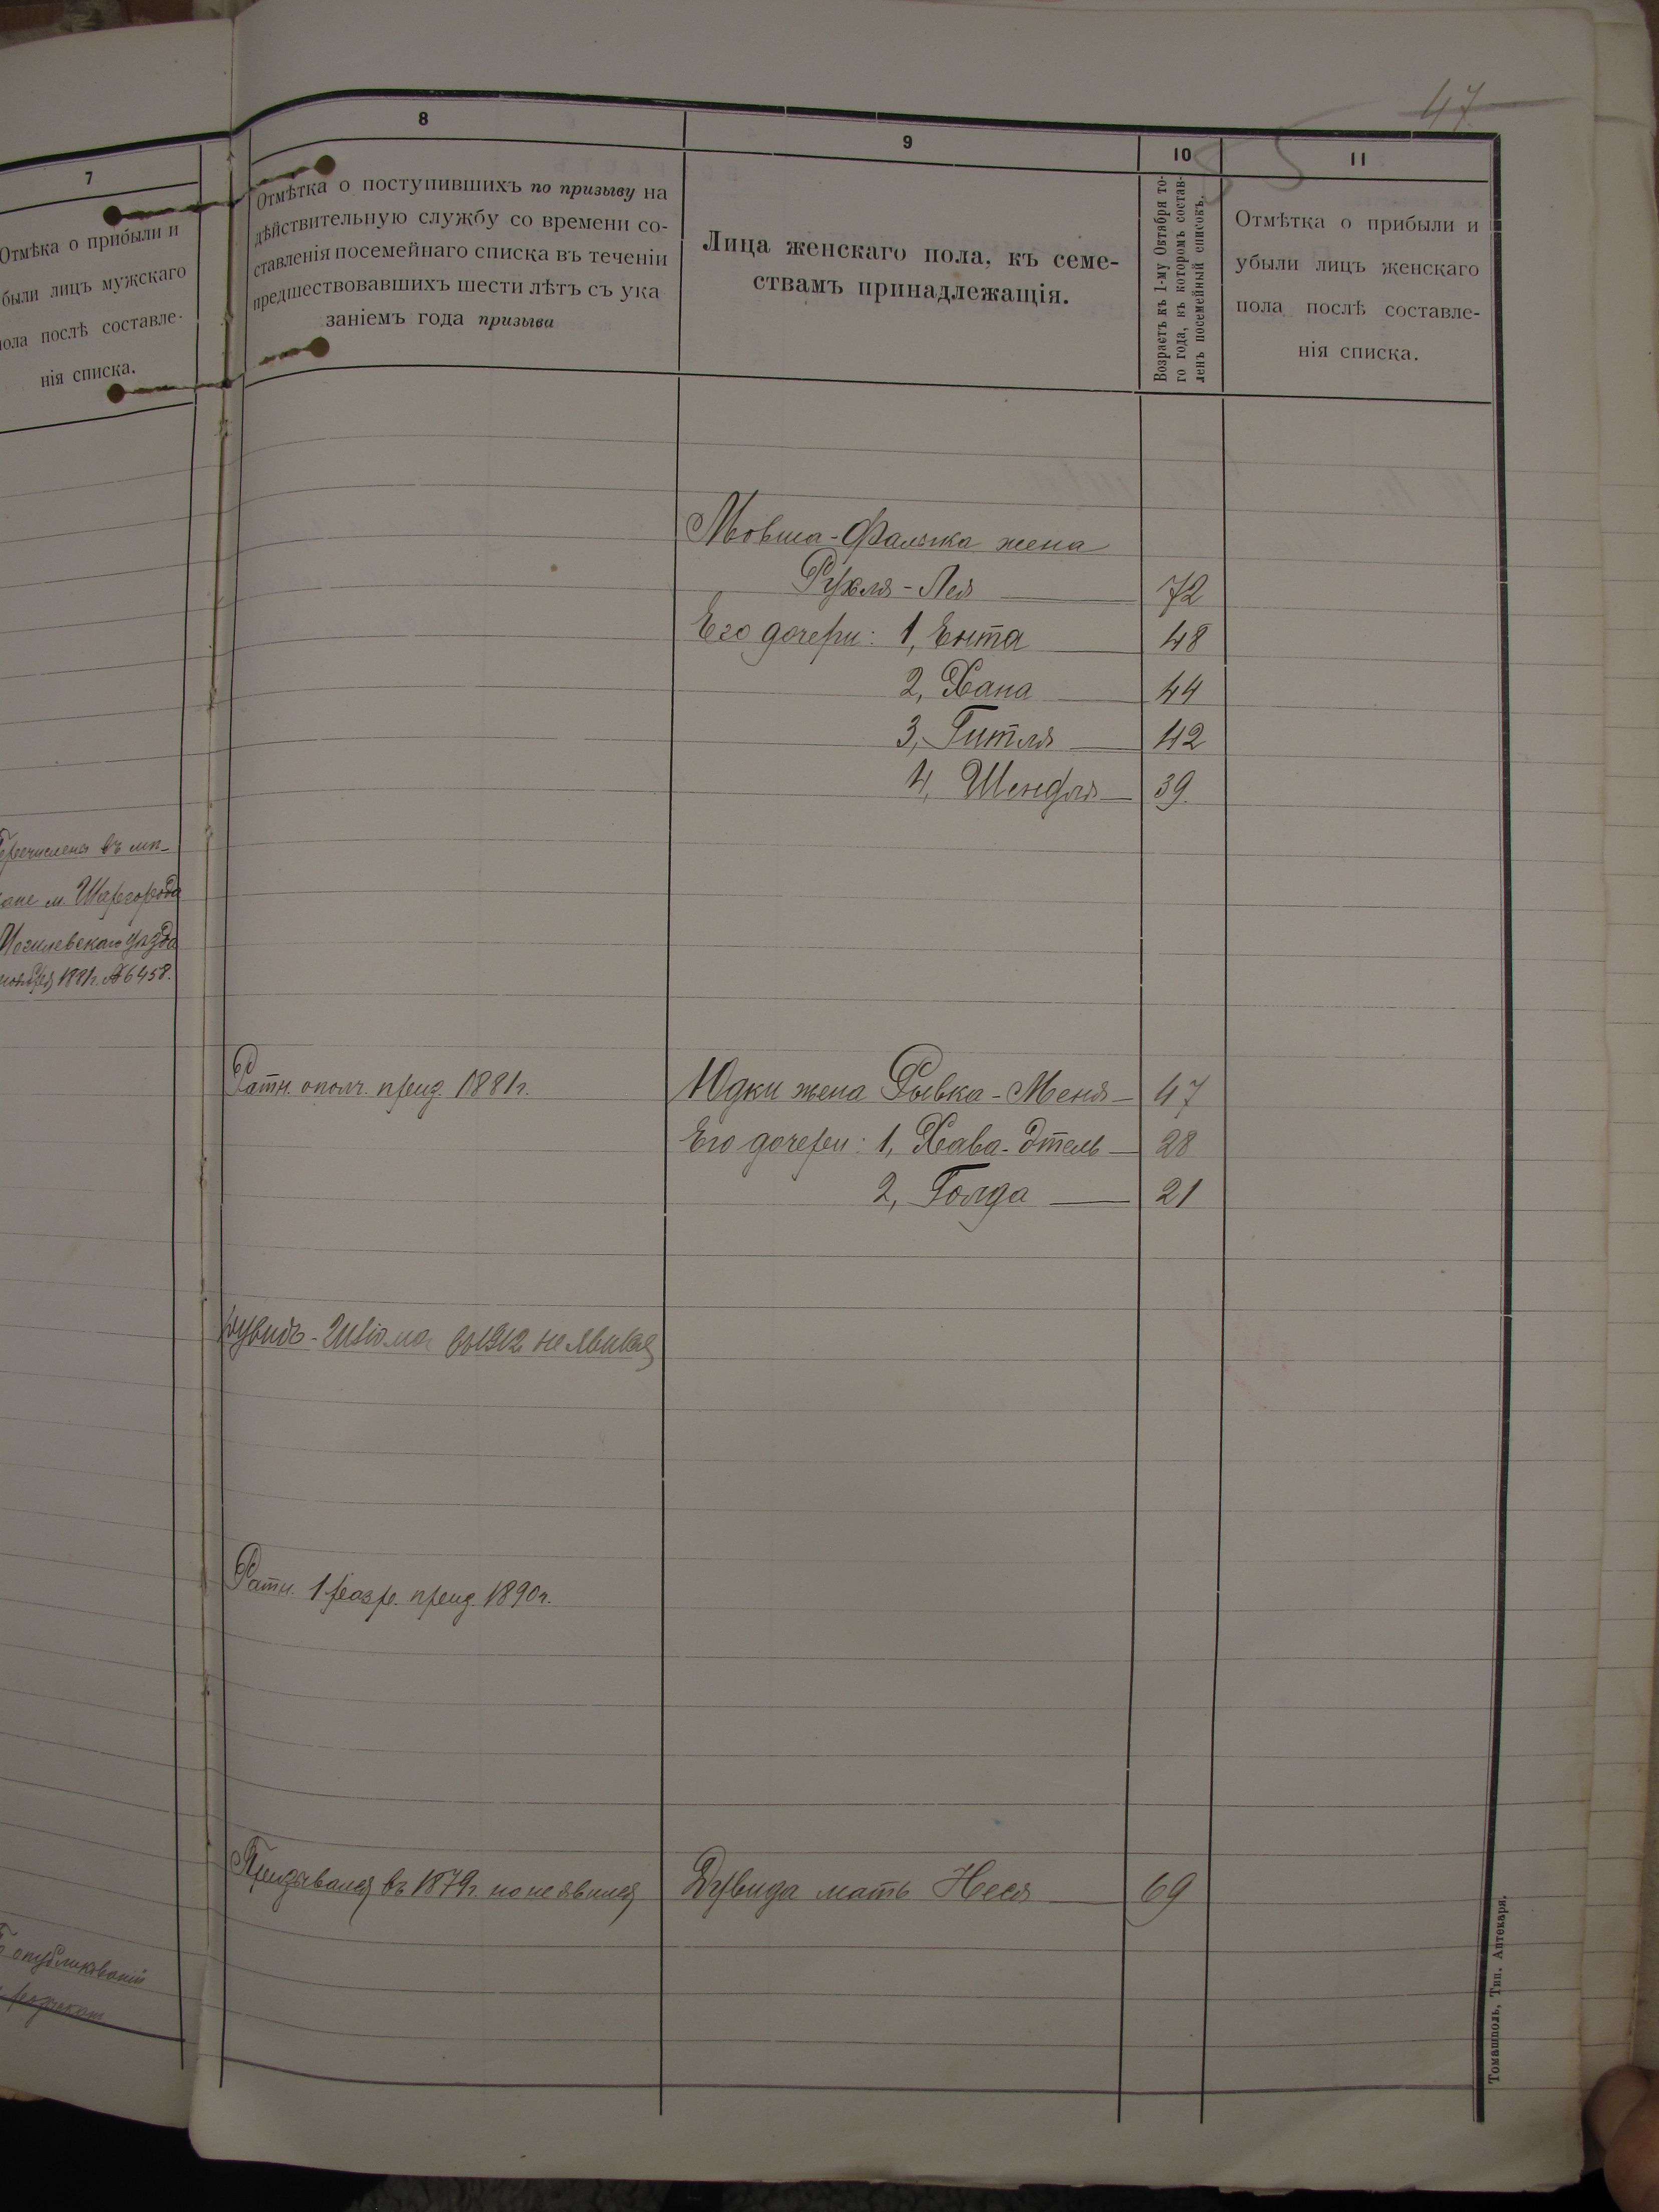 47
7
Отмѣка о прибыли и
были лицъ мужскаго
пола послѣ составле-
нія списка.
8
Отмѣтка о поступившихъ по призыву на
дѣйствительную службу со времени со-
ставленія посемейнаго списка въ теченіи
предшествовавшихъ шести лѣтъ съ ука
заніемъ года призыва
9
Лица женскаго пола, къ семе-
ствамъ принадлежащія.
10
Возрастъ къ 1-му Октября то-
го года, къ которомъ состав-
ленъ посемейный списокъ.
11
Отмѣтка о прибыли и
убыли лицъ женскаго
пола послѣ составле-
нія списка.
Мовша-Фалика жена
Рухля-Лея 72
Его дочери: 1, Ента 48
2, Хана 44
3, Гитля 42
4, Шендля 39.
Перечислена въ мѣ-
щане м. Шаргорода
Могилевскаго уѣзда
ноября 1881г. №6458.
Ратн. ополч. приз. 1881г. Юдки жена Рывка-Меня 47
Его дочери: 1, Хава-Этель 28
2, Голда 21
1912 не явился
Ратн. 1 разр. приз. 1890г.
Призывался въ 1879г. но не явился Дувида мать Неся 69
опубликованій
Томашполь, Тип. Аптекаря.